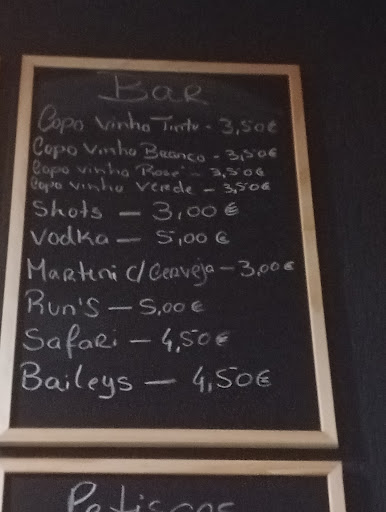 Bar
Copo Vinho Tinto - 3,50€
Copo Vinho Branco - 3,50€
Copo vinho Rosé - 3,50€
Copo vinho Verde - 3,50€
Shots - 3,00€
Vodka - 5,00€
Martini c/ Cerveja - 3,00€
Run's - 5,00€
Safari - 4,50€
Baileys - 4,50€
Petiscos